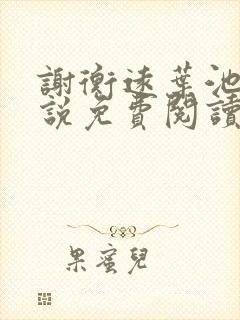 謝衡遠葉池
說免費閱讀
果蜜兒